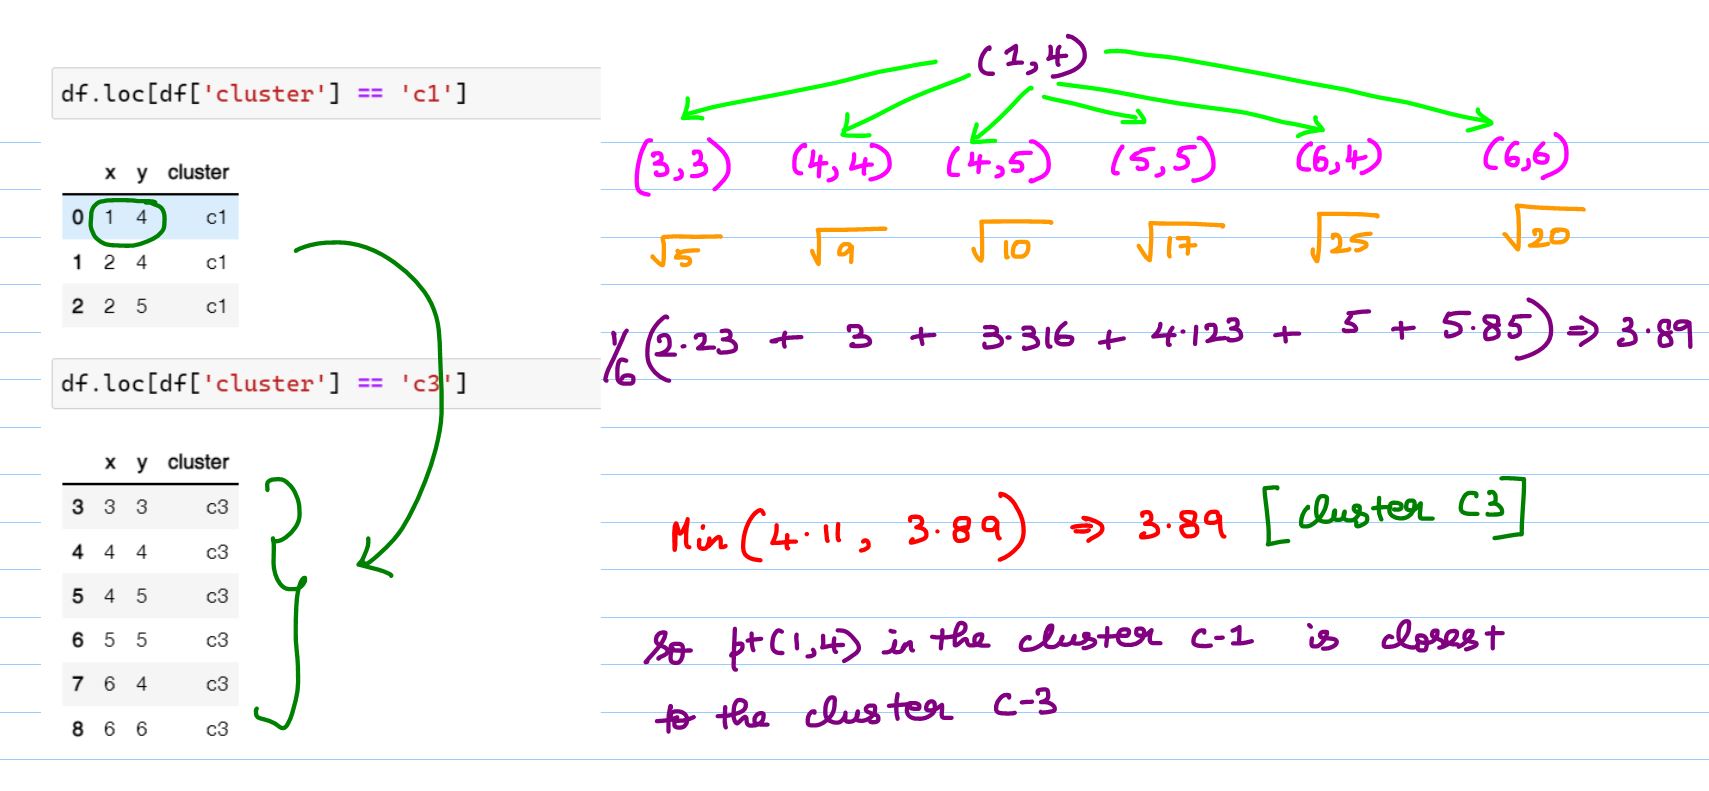 df.loc[df['cluster'] == 'c1']
x y cluster
0 1 4 c1
1 2 4 c1
2 2 5 c1
df.loc[df['cluster'] == 'c3']
x y cluster
3 3 3 c3
4 4 4 c3
5 4 5 c3
6 5 5 c3
7 6 4 c3
8 6 6 c3
(1,4)
(3,3) (4,4) (4,5) (5,5) (6,4) (6,6)
√5 √9 √10 √17 √25 √20
1/6 (2.23 + 3 + 3.316 + 4.123 + 5 + 5.85) ⇒ 3.89
Min (4.11, 3.89) ⇒ 3.89 [cluster C3]
So pt(1,4) in the cluster C-1 is closest
to the cluster C-3